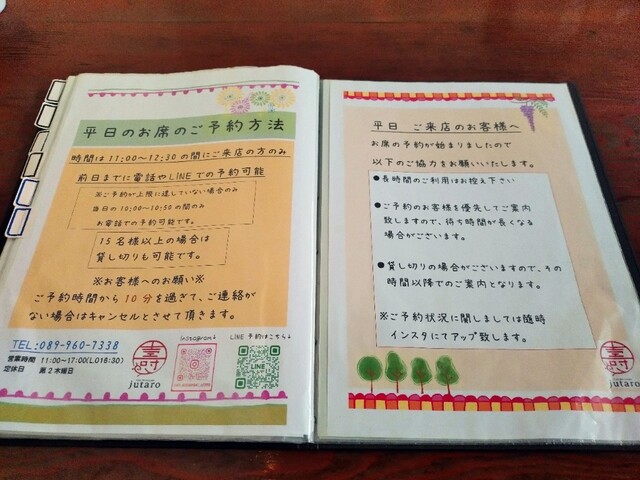 平日のお席のご予約方法
時間は 11:00～12:30 の間にご来店の方のみ
前日までに電話やLINEでの予約可能
※ご予約が上限に達していない場合のみ
当日の 10:00～10:50 の間のみ
お電話での予約可能です。
15名様以上の場合は
貸し切りも可能です。
※お客様へのお願い※
ご予約時間から 10分を過ぎて、ご連絡が
ない場合はキャンセルとさせて頂きます。
TEL:089-960-7338
営業時間 11:00～17:00(LO16:30)
定休日 第2木曜日
instagram↓
LINE 予約はこちら↓
LINE
jutaro
平日 ご来店のお客様へ
お席の予約が始まりましたので
以下のご協力をお願いいたします。
●長時間のご利用はお控え下さい
●ご予約のお客様を優先してご案内
致しますので、待ち時間が長くなる
場合がございます。
●貸し切りの場合がございますので、その
時間以降でのご案内となります。
※ご予約状況に関しましては随時
インスタにてアップ致します。
jutaro